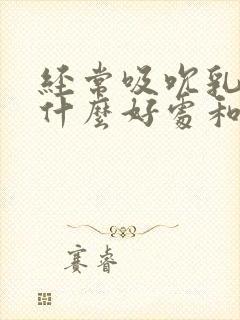 经常吸吮乳
什麼好處和
赛睿